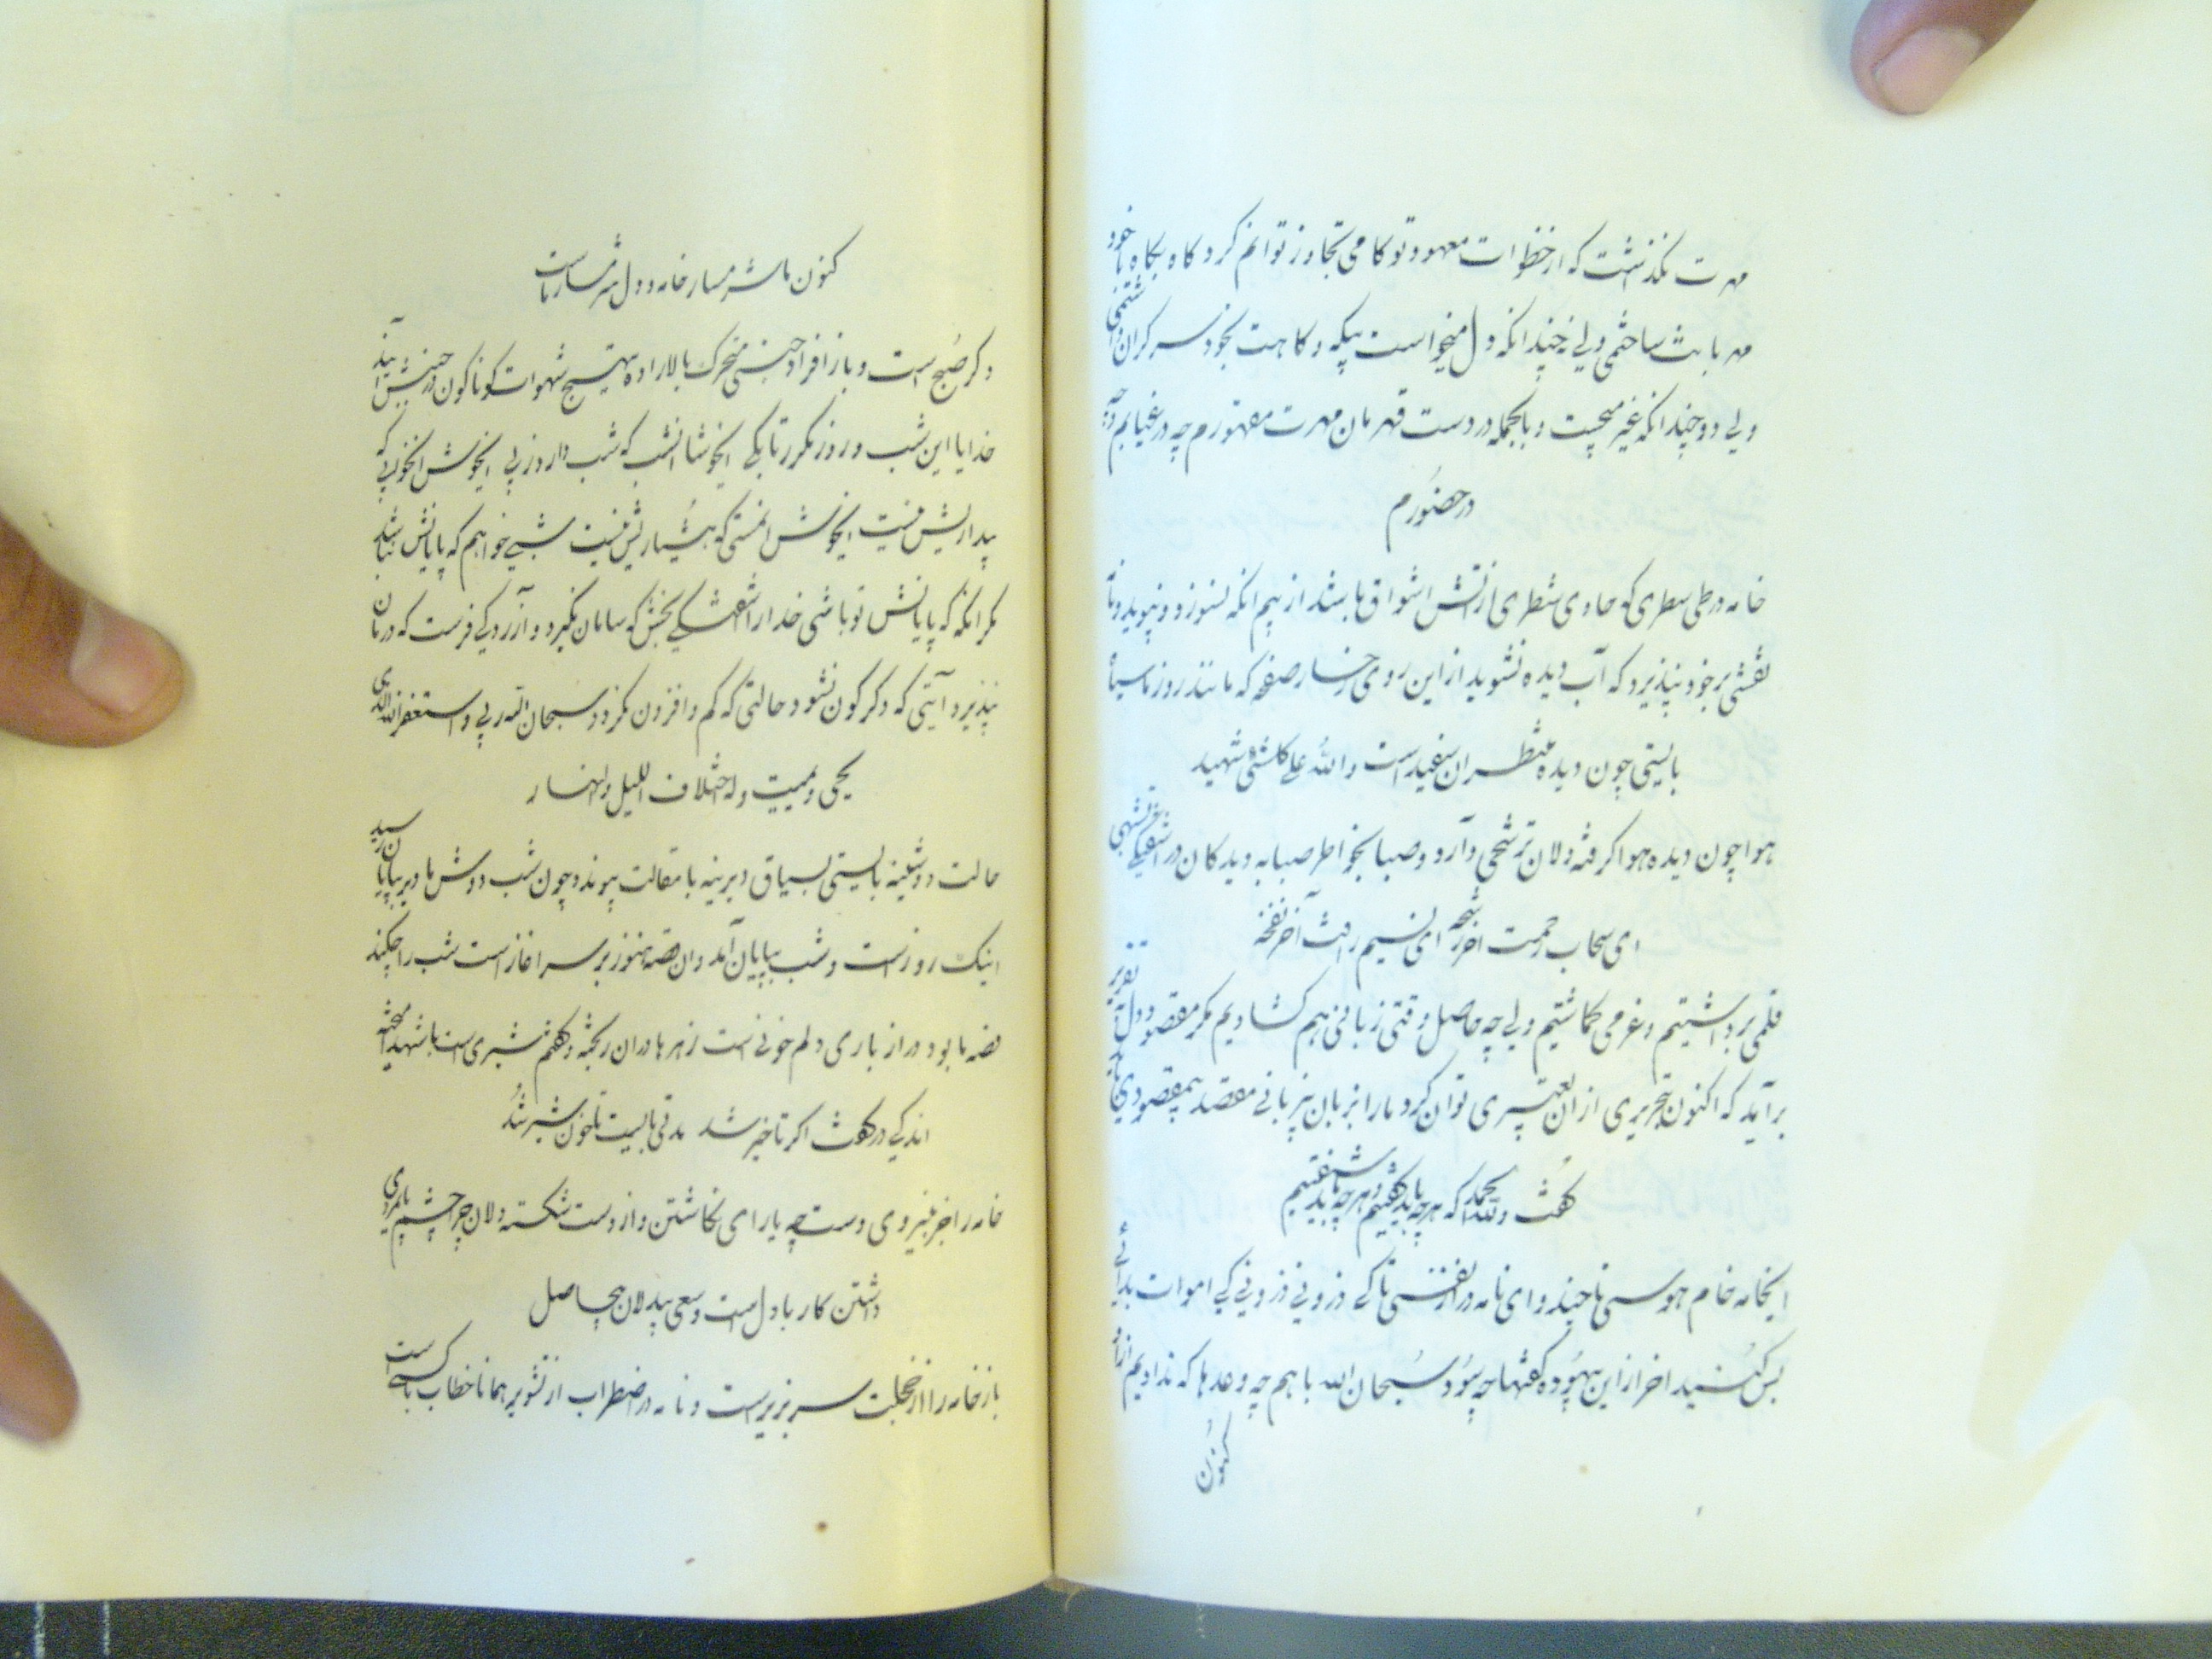 مهرت نگذشت که از خطوات معهود تو گامی تجاوز توانم کرد گاه بگاه با خود
مهربانت ساختمی ولی نچندانکه دل میخواست پیکه و گاهت بخود سرگران داشتمی
ولی دو چندانکه غیر میجست و بالجمله در دست قهرمان مهرت مقهورم چه در غیابم و چه
در حضورم
خامه در طی سطری که حاوی شطری از آتش اشواق باشد از بیم آنکه نسوزد و نپوید و نامه
نقشی بر خود نپذیرد که آب دیده نشوید از این روی رخسار صفحه که مانند روز ما سیاه
بایستی چون دیده منتظران سفید است والله علی کل شیء شهید
هوا چون دیده هوا گرفته دلان ترشحی دارد و صبا بخواطر صبابه دیدگان در آشفتگی
ای سحاب رحمت آخر رشحه ای نسیم رافت آخر نفخه
قلمی برداشتیم و غرمی گماشتیم ولی چه حاصل وقتی زبانی هم گشادیم مگر مقصود دل تقریر
برآید که اکنون تحریری از آن تعبیری توان کرد ما را بزبان بیزبانی مقصد بیمقصودی
گفت ولله الحمد که هر چه باید گفتیم و هر چه باید شنفتیم
ایخامه خام هوسی تا چند و ای نامه دراز نفسی تا کی
بس کنید آخر از این بیهوده گفتنها چه سود سبحان الله با هم چه وعدها که ندادیم
کنون
کنون ما شرمسار خامه و دل شرمسار ماست
دگر صبح است و باز افراد جنسی متحرک بالاراده بتهییج شهوات گوناگون در جنبش آیند
خدایا این شب و روز مکرر تا بکی ایخوشا آنشب که شب دار روز پی ایخوش آنخواب که
بیداریش نیست ایخوش آنمستی که هشیاریش نیست شبی خواهم که پایانش نباشد
مگر آنکه که پایانش تو باشی خدا را آشفتگی بخش که سامان نگیرد و آزردگی فرست که درمان
نپذیرد آیتی که دگرگون نشود و حالتی که کم و افزون نگردد سبحان الله ربی و استغفر الله الذی
یحیی و یمیت وله اختلاف اللیل والنهار
حالت دوشینه بایستی بسیاق دیرینه با مقالت پیوندد چون شب دوش ما دیر بپایان رسید
اینک روز است و شب بپایان آمد و آن قصه هنوز بر سر آغاز است شب را چکند
قصه ما بود دراز باری دلم خونی است زهرها در آن ریخته و گفتم شیری است با شهد آمیخته
اندکی در گفت اگر تاخیر شد مدتی بایست تا خون شیر شد
خامه را جز بنیروی دست چه یارای نگاشتن و از دست شکسته دلان چرا چشم پایمردی
داشتن کار با دل است و سعی بیدلان بیحاصل
باز خامه را از خجلت سر بزیر است و نامه در اضطراب از تشویر همانا خطاب با کسی است